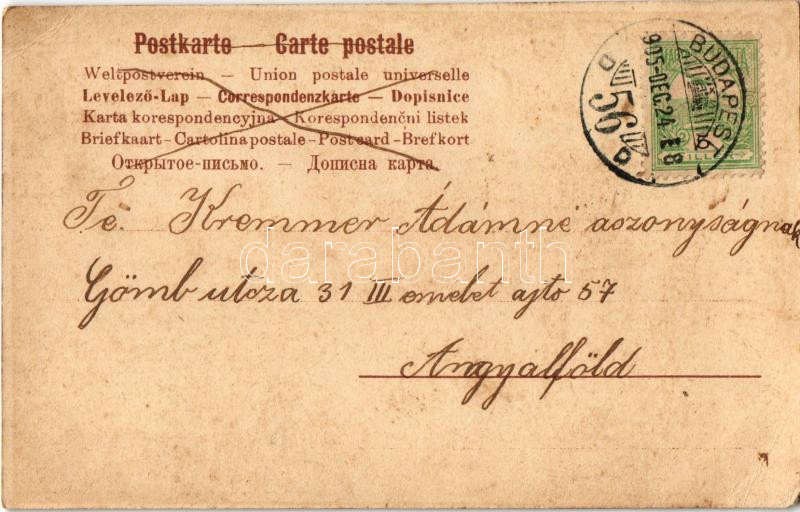 Postkarte — Carte postale
Weltpostverein — Union postale universelle
Levelező-Lap — Correspondenzkarte — Dopisnice
Karta korespondencyjna — Korespondenčni listek
Briefkaart - Cartolina postale - Post card - Brefkort
Открытое-письмо. — Дописна карта.
BUDAPEST
905 DEC 24
56
Te. Kremmer Ádámné aszonyságnak
Gömb utcza 31 III emelet ajto 57
Angyalföld
darabanth